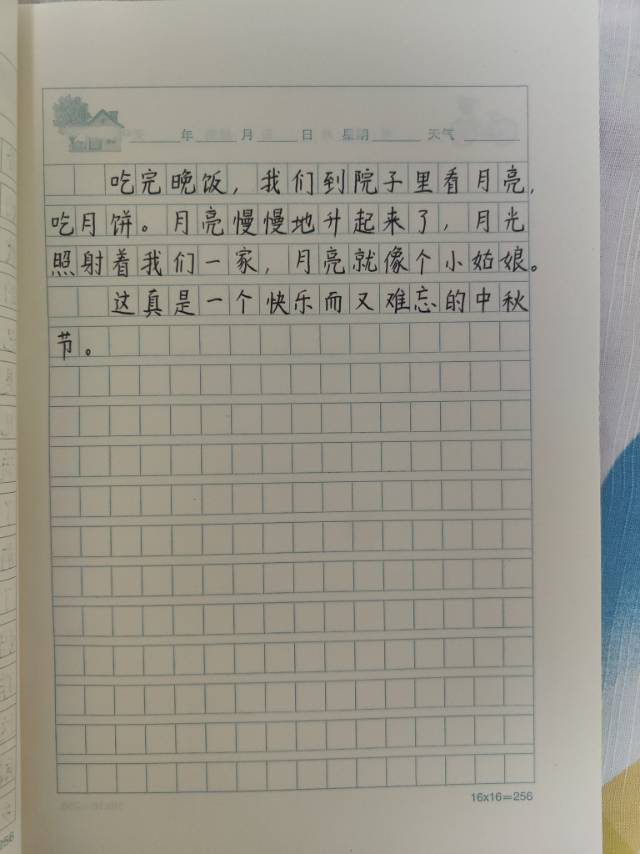 年 月 日 星期 天气
吃完晚饭，我们到院子里看月亮，
吃月饼。月亮慢慢地升起来了，月光
照射着我们一家，月亮就像个小姑娘。
这真是一个快乐而又难忘的中秋
节。
16x16=256